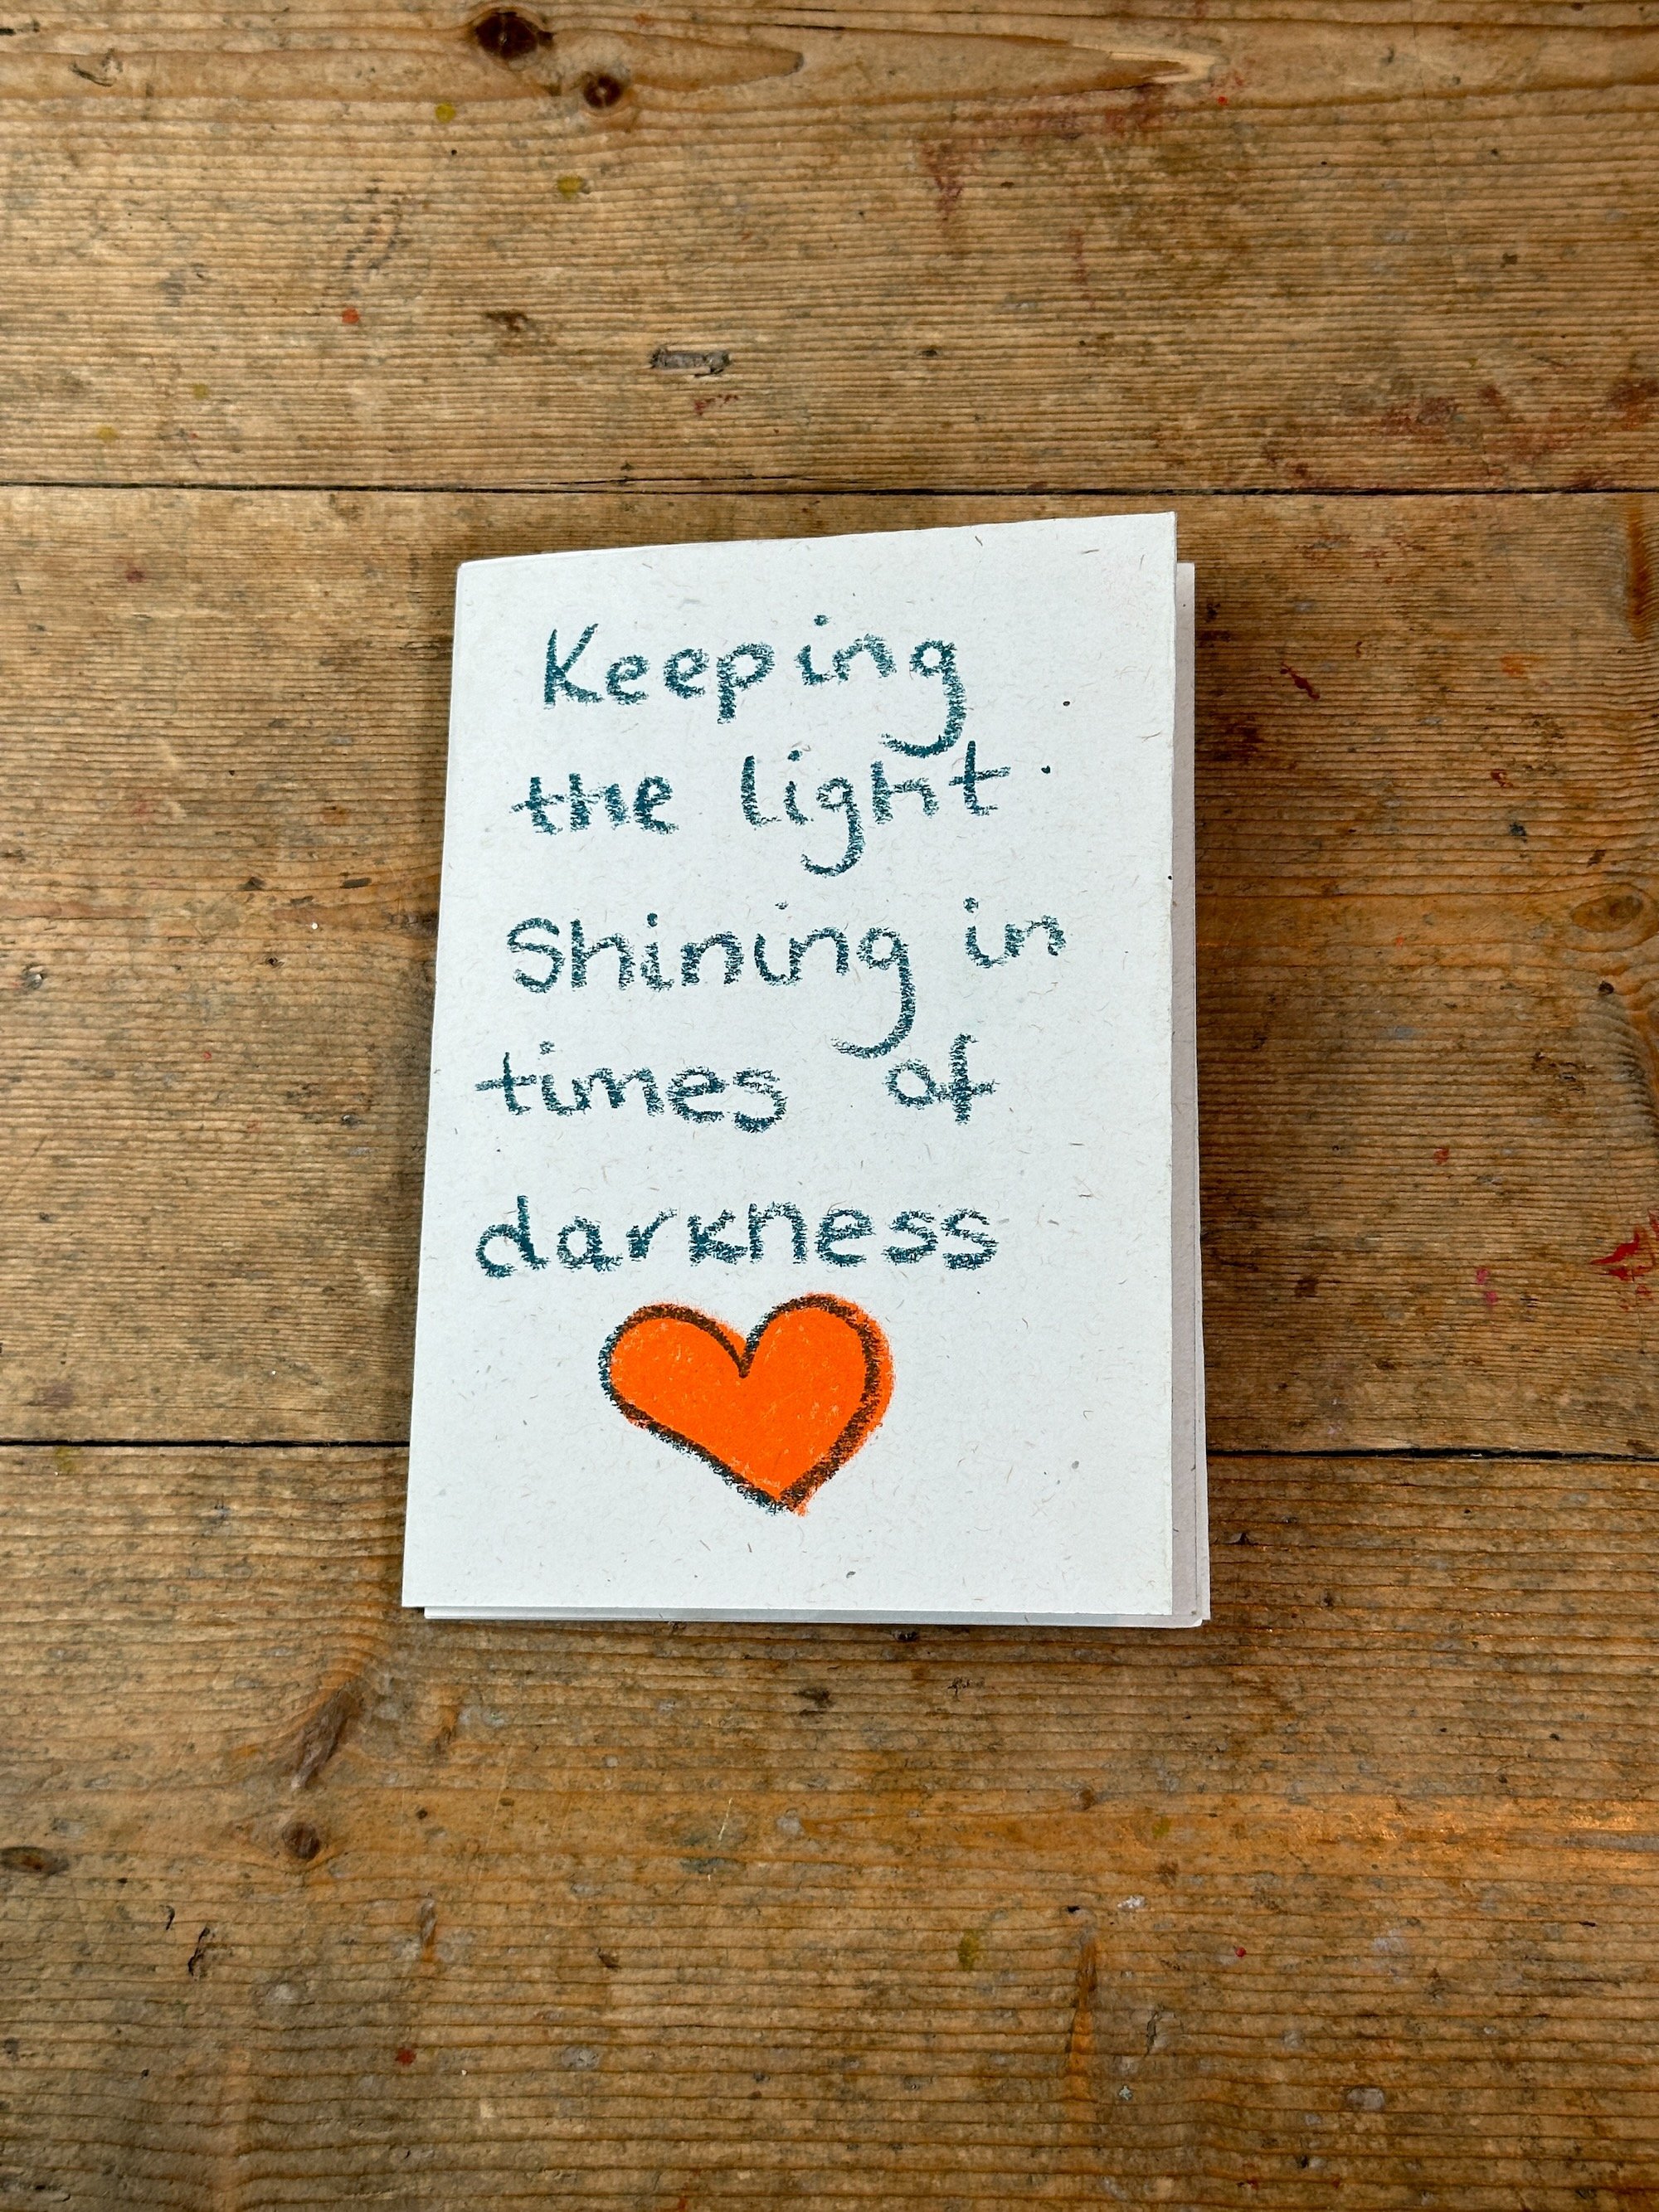 Keeping
the light
Shining in
times of
darkness